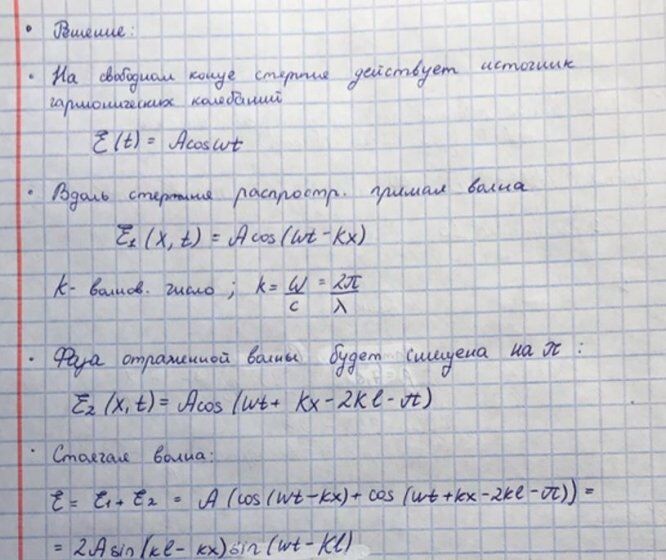 • Решение:
• На свободном конце стержня действует источник
гармонических колебаний
ξ(t) = Acosωt
• Вдоль стержня распростр. прямая волна
ξ₁(x,t) = Acos(ωt-kx)
k- волнов. число ; k = ω/c = 2π/λ
• Фаза отраженной волны будет смещена на π :
ξ₂(x,t) = Acos(ωt + kx - 2kl - π)
• Стоячая волна:
ξ = ξ₁ + ξ₂ = A(cos(ωt-kx) + cos(ωt+kx-2kl-π)) =
= 2Asin(kl-kx)sin(ωt-kl)